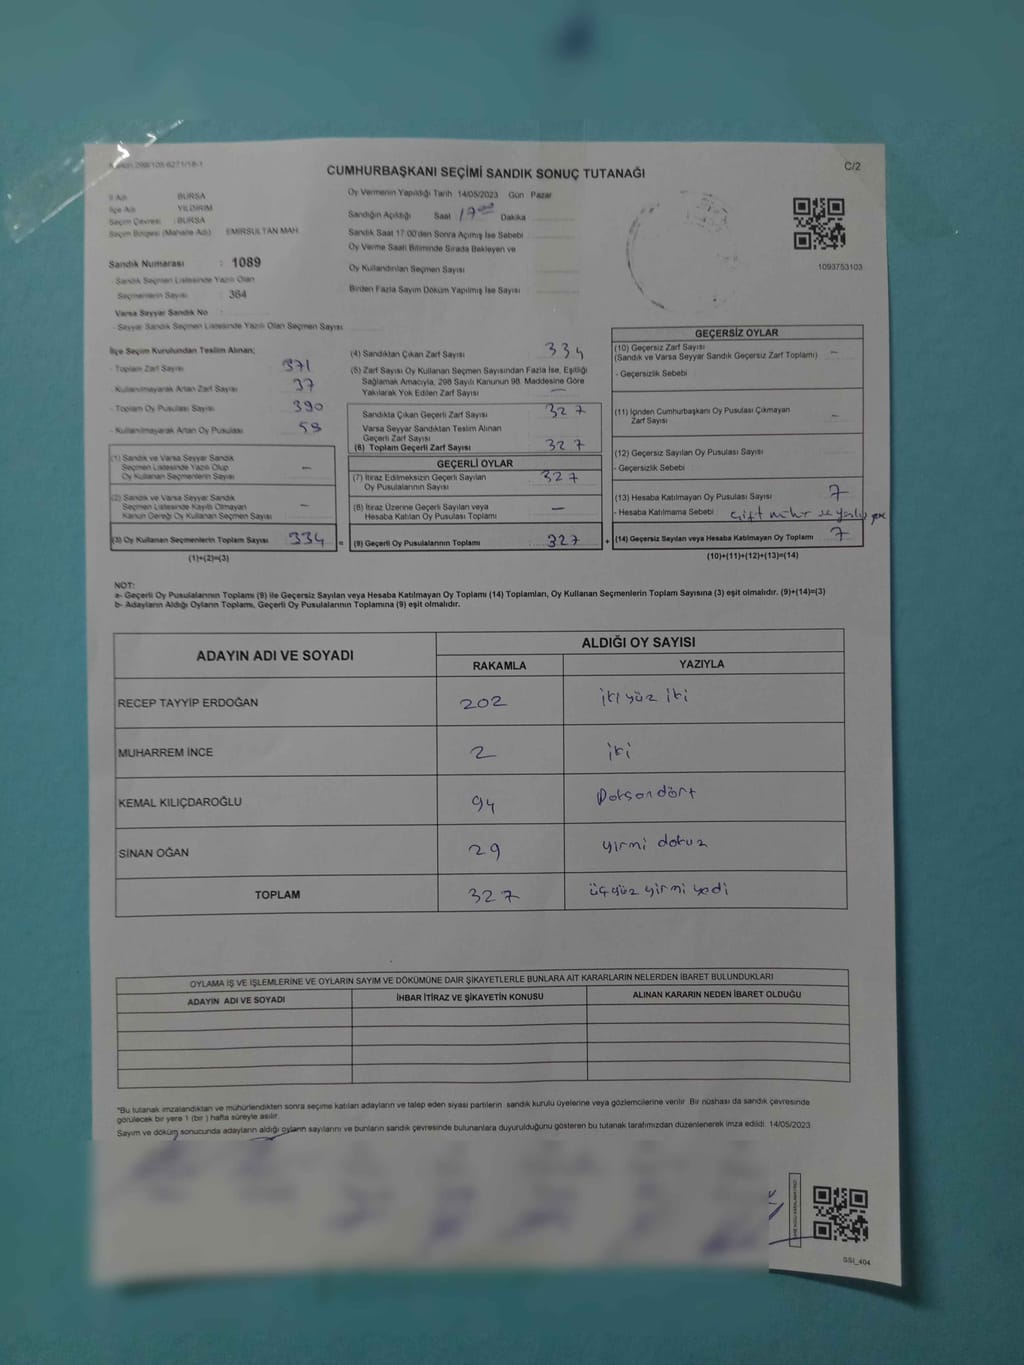 C/2
CUMHURBAŞKANI SEÇİMİ SANDIK SONUÇ TUTANAĞI
İl Adı BURSA
İlçe Adı YILDIRIM
Seçim Çevresi : BURSA
Seçim Bölgesi (Mahalle Adı) EMİRSULTAN MAH.
Sandık Numarası : 1089
- Sandık Seçmen Listesinde Yazılı Olan
Seçmenlerin Sayısı : 364
Varsa Seyyar Sandık No
- Seyyar Sandık Seçmen Listesinde Yazılı Olan Seçmen Sayısı
Oy Vermenin Yapıldığı Tarih 14/05/2023 Gün Pazar
Sandığın Açıldığı Saat Dakika
Sandık Saat 17:00'den Sonra Açılmış İse Sebebi
Oy Verme Saati Bitiminde Sırada Bekleyen ve
Oy Kullandırılan Seçmen Sayısı
Birden Fazla Sayım Döküm Yapılmış İse Sayısı
1093753103
İlçe Seçim Kurulundan Teslim Alınan;
- Toplam Zarf Sayısı 371
- Kullanılmayarak Artan Zarf Sayısı 37
- Toplam Oy Pusulası Sayısı 390
- Kullanılmayarak Artan Oy Pusulası
(1) Sandık ve Varsa Seyyar Sandık
Seçmen Listesinde Yazılı Olup
Oy Kullanan Seçmenlerin Sayısı –
(2) Sandık ve Varsa Seyyar Sandık
Seçmen Listesinde Kayıtlı Olmayan
Kanun Gereği Oy Kullanan Seçmen Sayısı –
(3) Oy Kullanan Seçmenlerin Toplam Sayısı 334 =
(1)+(2)=(3)
(4) Sandıktan Çıkan Zarf Sayısı 334
(5) Zarf Sayısı Oy Kullanan Seçmen Sayısından Fazla İse, Eşitliği
Sağlamak Amacıyla, 298 Sayılı Kanunun 98. Maddesine Göre
Yakılarak Yok Edilen Zarf Sayısı –
Sandıkta Çıkan Geçerli Zarf Sayısı 327
Varsa Seyyar Sandıktan Teslim Alınan
Geçerli Zarf Sayısı
(6) Toplam Geçerli Zarf Sayısı 327
GEÇERLİ OYLAR
(7) İtiraz Edilmeksizin Geçerli Sayılan
Oy Pusulalarının Sayısı 327
(8) İtiraz Üzerine Geçerli Sayılan veya
Hesaba Katılan Oy Pusulası Toplamı –
(9) Geçerli Oy Pusulalarının Toplamı 327 +
GEÇERSİZ OYLAR
(10) Geçersiz Zarf Sayısı
(Sandık ve Varsa Seyyar Sandık Geçersiz Zarf Toplamı) –
- Geçersizlik Sebebi
(11) İçinden Cumhurbaşkanı Oy Pusulası Çıkmayan
Zarf Sayısı –
(12) Geçersiz Sayılan Oy Pusulası Sayısı
- Geçersizlik Sebebi
(13) Hesaba Katılmayan Oy Pusulası Sayısı 7
- Hesaba Katılmama Sebebi : çift mühr
(14) Geçersiz Sayılan veya Hesaba Katılmayan Oy Toplamı 7
(10)+(11)+(12)+(13)=(14)
NOT:
a- Geçerli Oy Pusulalarının Toplamı (9) ile Geçersiz Sayılan veya Hesaba Katılmayan Oy Toplamı (14) Toplamları, Oy Kullanan Seçmenlerin Toplam Sayısına (3) eşit olmalıdır. (9)+(14)=(3)
b- Adayların Aldığı Oyların Toplamı, Geçerli Oy Pusulalarının Toplamına (9) eşit olmalıdır.
ADAYIN ADI VE SOYADI
ALDIĞI OY SAYISI
RAKAMLA YAZIYLA
RECEP TAYYİP ERDOĞAN 202 ikiyüz iki
MUHARREM İNCE 2 iki
KEMAL KILIÇDAROĞLU 94 Doksandört
SİNAN OĞAN 29 yirmi dokuz
TOPLAM 327 üçyüz yirmi yedi
OYLAMA İŞ VE İŞLEMLERİNE VE OYLARIN SAYIM VE DÖKÜMÜNE DAİR ŞİKAYETLERLE BUNLARA AİT KARARLARIN NELERDEN İBARET BULUNDUKLARI
ADAYIN ADI VE SOYADI İHBAR İTİRAZ VE ŞİKAYETİN KONUSU ALINAN KARARIN NEDEN İBARET OLDUĞU
*Bu tutanak imzalandıktan ve mühürlendikten sonra seçime katılan adayların ve talep eden siyasi partilerin sandık kurulu üyelerine veya gözlemcilerine verilir. Bir nüshası da sandık çevresinde
görülecek bir yere 1 (bir) hafta süreyle asılır.
Sayım ve döküm sonucunda adayların aldığı oyların sayılarını ve bunların sandık çevresinde bulunanlara duyurulduğunu gösteren bu tutanak tarafımızdan düzenlenerek imza edildi. 14/05/2023
GSI_404